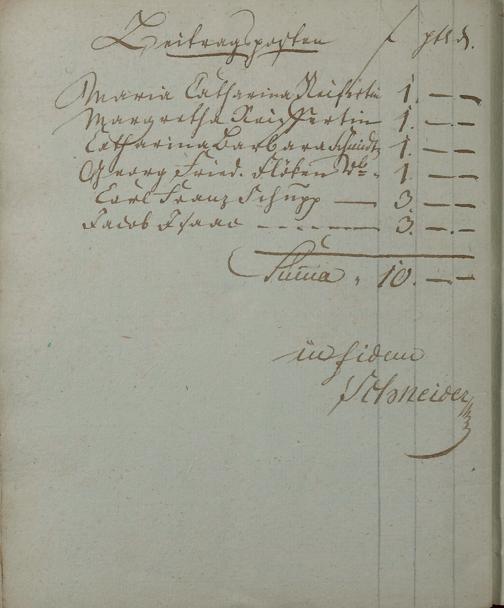 Beitragsposten f
Maria Catharina Reifertin 1. — —
Margretha Reiffertin 1. — —
Catharina Barbara Schmidt 1. — —
Georg Fried. Flöken 1. — —
Carl Franz Schupp — 3. — —
Jacob Isaac - - - - - - 3. — —
Summa 10. — —
in fidem
Schneider